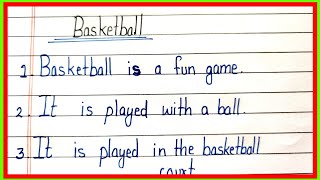 Basketball
1. Basketball is a fun game.
2. It is played with a ball.
3. It is played in the basketball
court